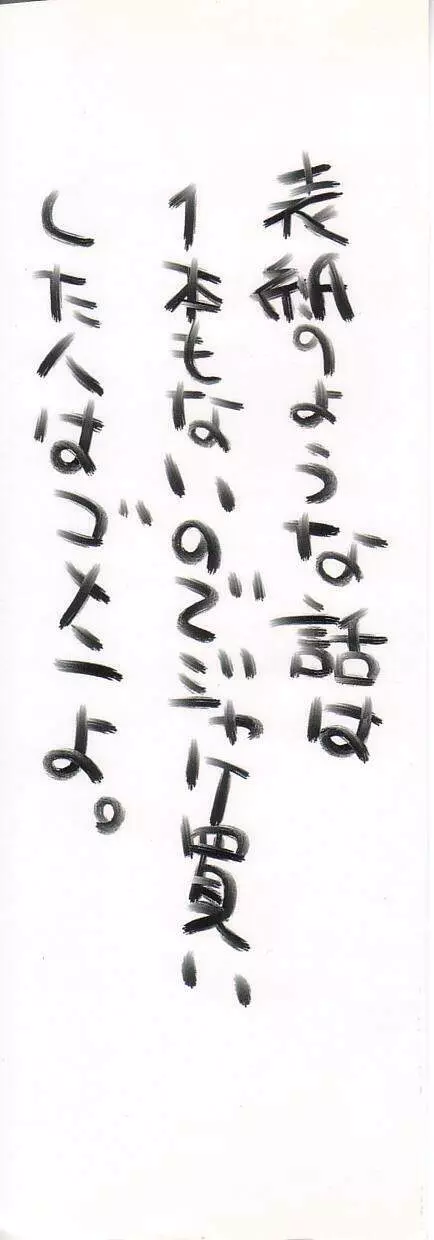 表紙のような話は
1本もないのでジャケ買い
した人はゴメンよ。